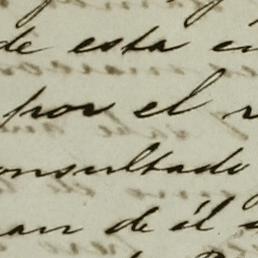 de esta
por el
onsultado
an de él